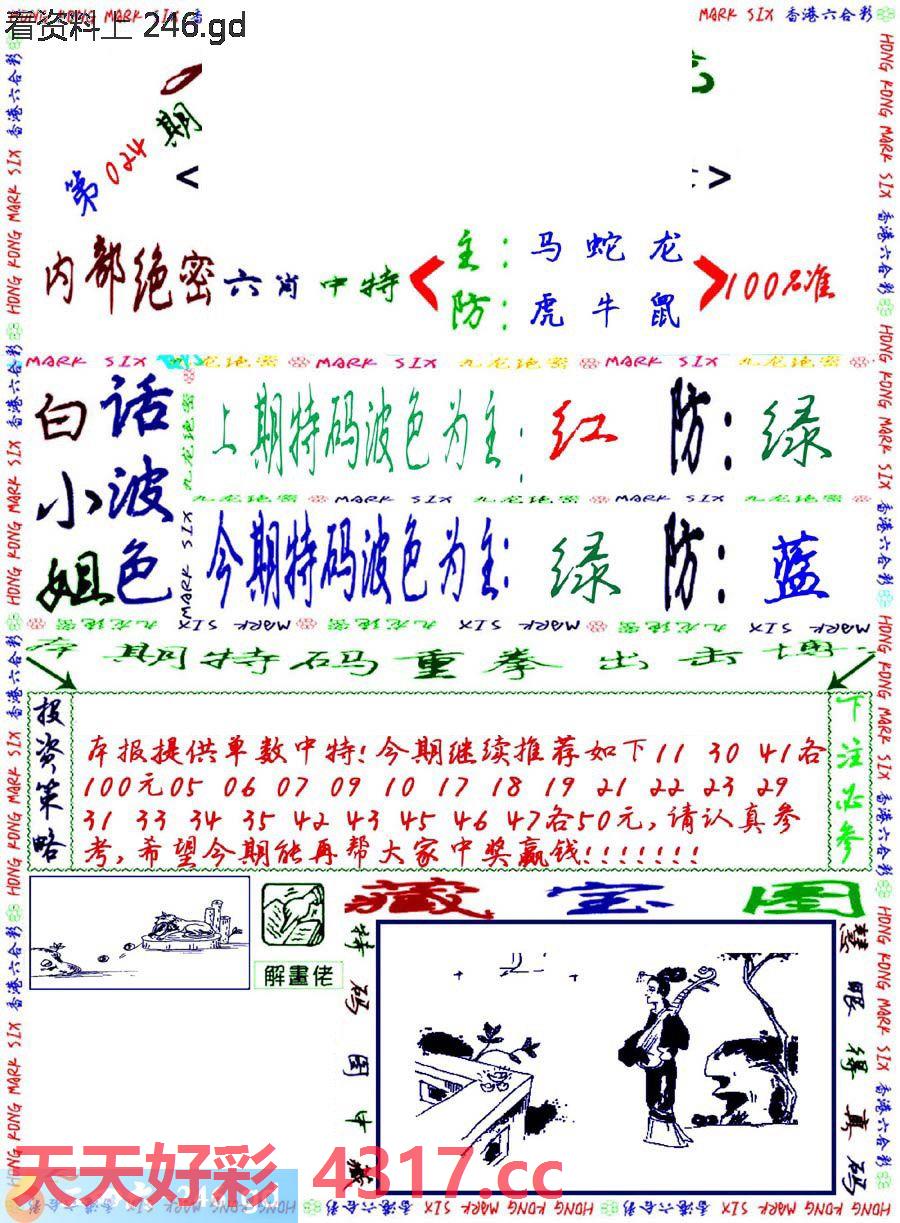 看资料上 246.gd
MARK SIX 香港六合彩
第024期
< >
内部绝密六肖中特
主：马蛇龙
防：虎牛鼠
100%准
MARK SIX 九龙绝密 MARK SIX 九龙绝密 MARK SIX 九龙绝密
白话小波姐色
上期特码波色为主：红 防：绿
九龙绝密 MARK SIX 九龙绝密 MARK SIX 九龙绝密
今期特码波色为主：绿 防：蓝
期特码重拳出击
投资策略
本报提供单数中特!今期继续推荐如下11 30 41各
100元05 06 07 09 10 17 18 19 21 22 23 29
31 33 34 35 42 43 45 46 47各50元,请认真参
考,希望今期能再帮大家中奖赢钱!!!!!!!
下注必参
藏宝图
解畫佬
特码图中
慧眼得真码
天天好彩 4317.cc
HONG KONG MARK SIX 香港六合彩